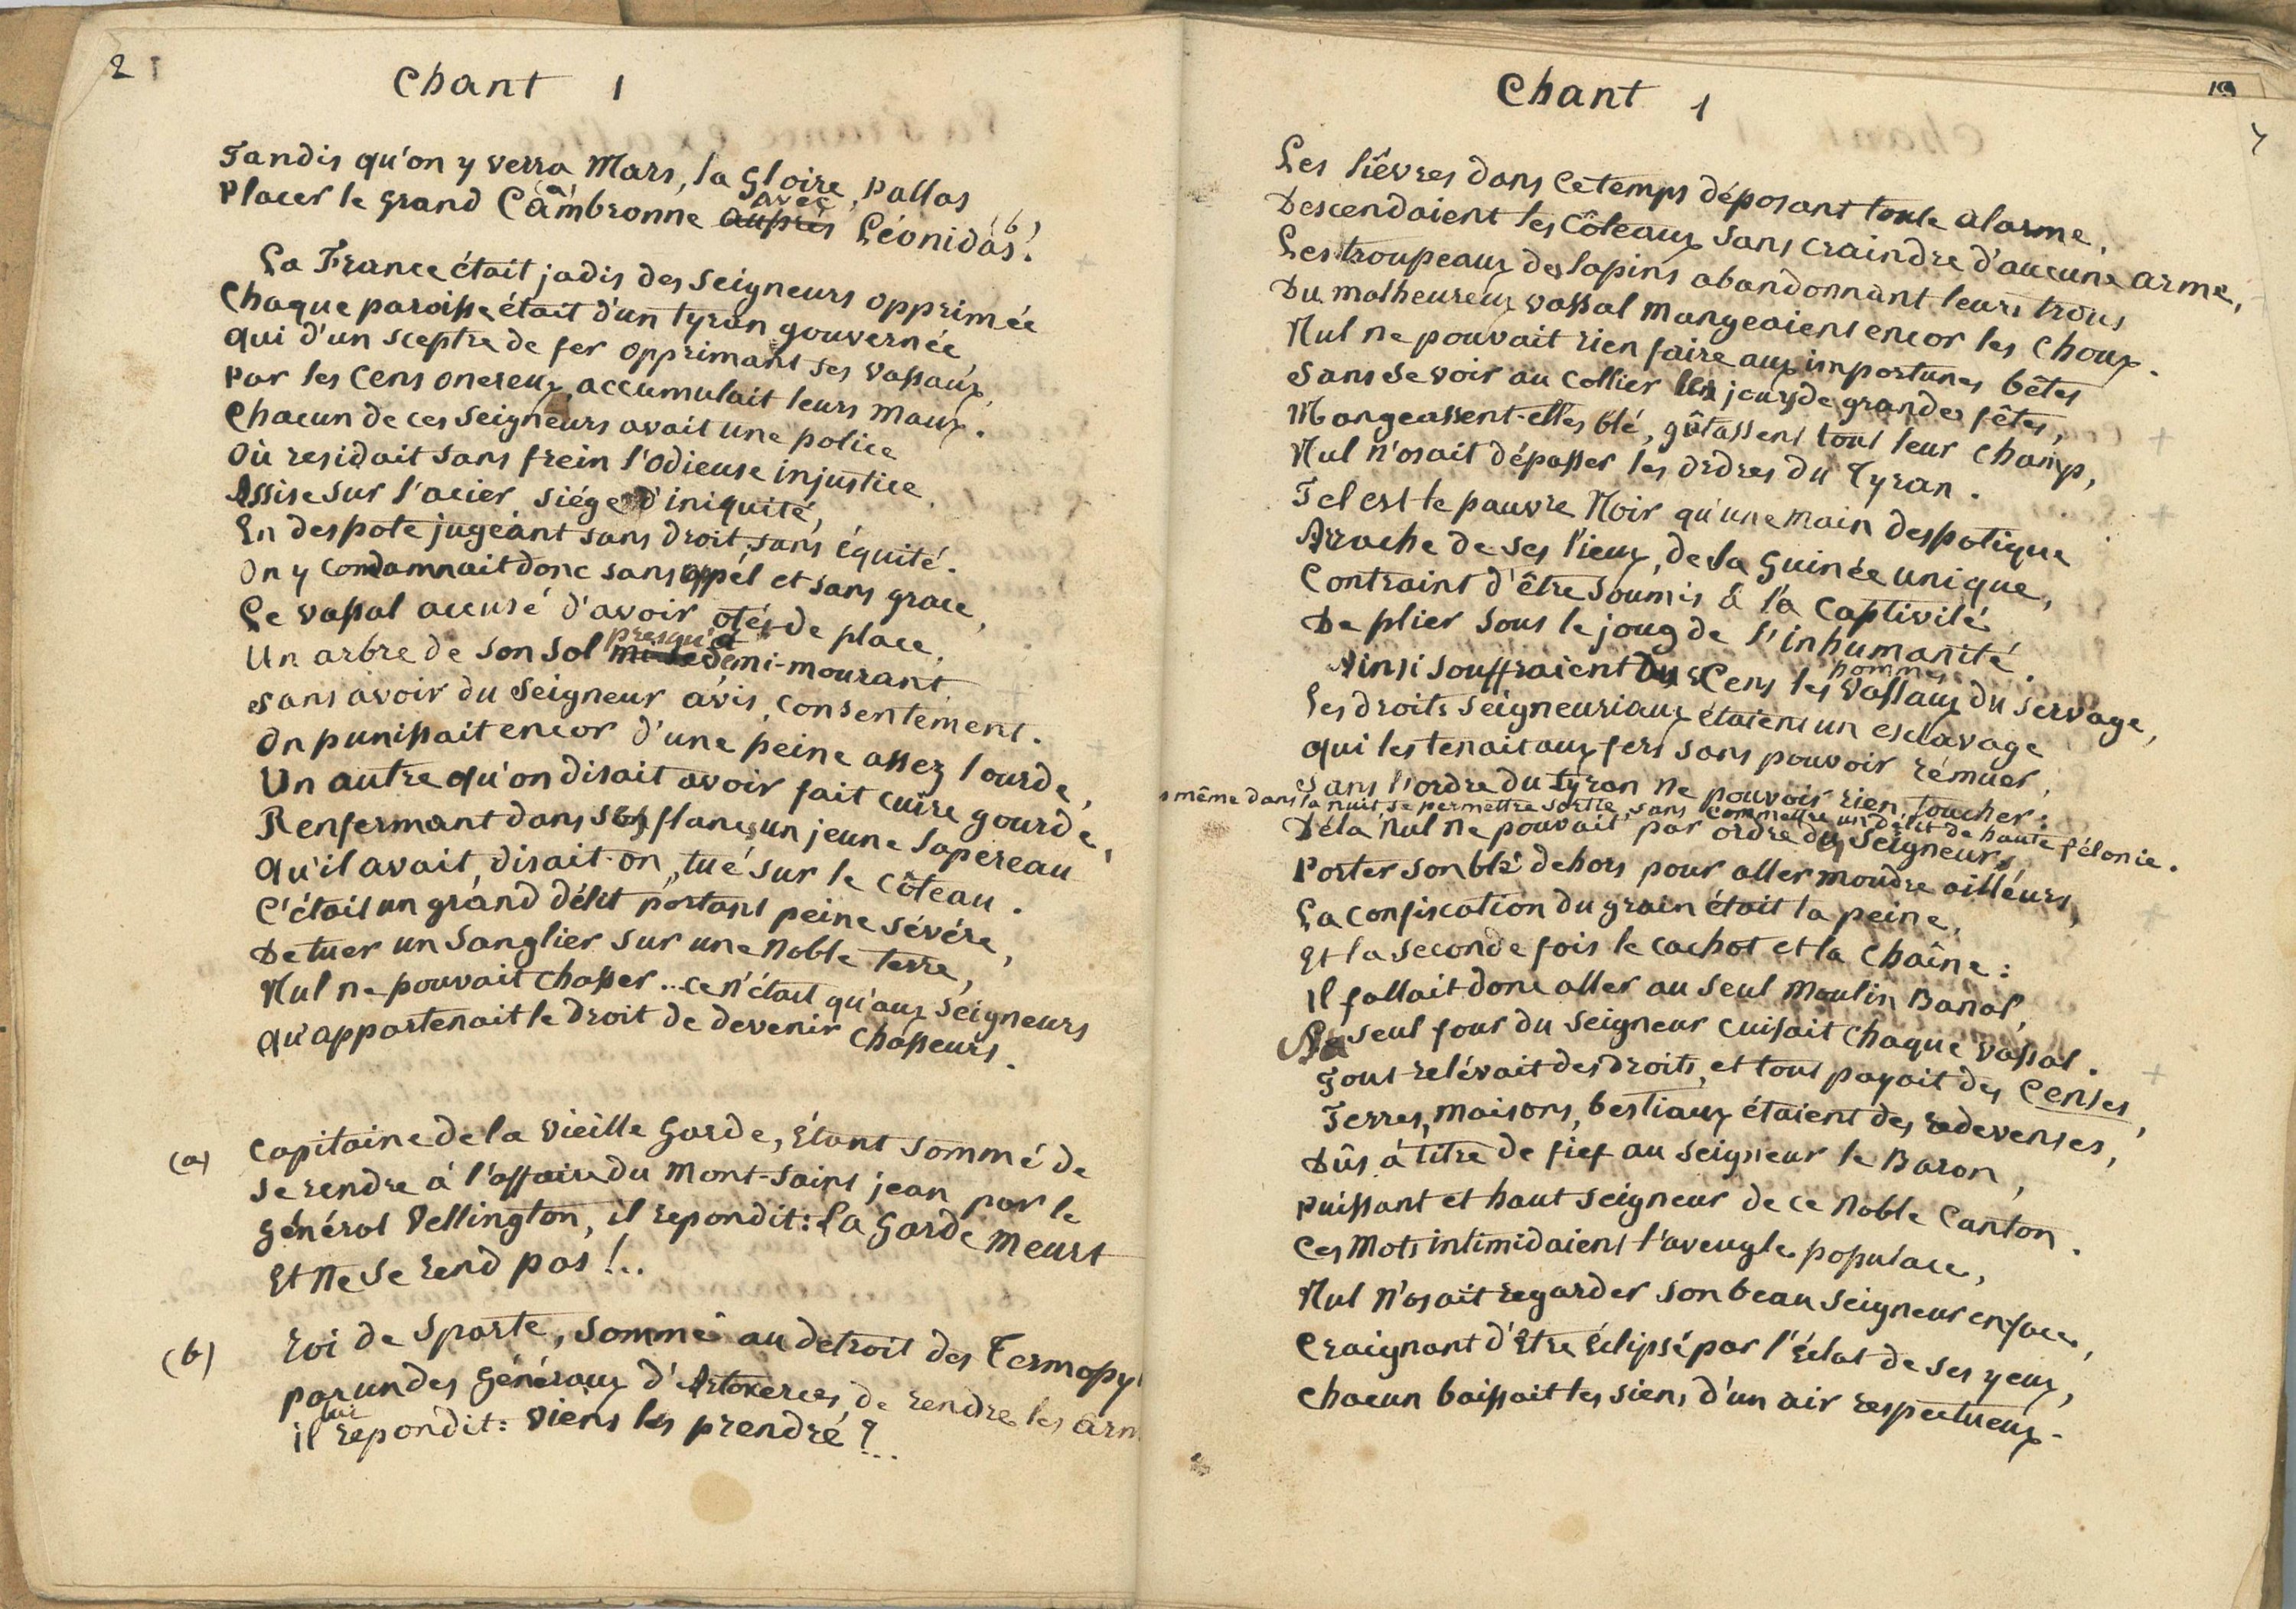 2
Chant 1
Tandis qu'on y verra Mars, la Gloire, Pallas
avec
(a)
Placer le grand Cambronne auprès Léonidas! (b)
La France était jadis des seigneurs opprimée
Chaque paroisse était d'un tyran gouvernée
Qui d'un sceptre de fer opprimant ses vassaux,
Par les cens onereux, accumulait leurs maux.
Chacun de ces seigneurs avait une police
Où residait sans frein l'odieuse injustice.
Assise sur l'acier, siége d'iniquité,
En despote jugeant sans droit, sans équité.
On y condamnait donc sans appél et sans grace,
Le vassal accusé d'avoir otés de place,
presqu'à
Un arbre de son sol demi-mourant,
sans avoir du seigneur avis, consentement.
On punissait encor d'une peine assez lourde,
Un autre qu'on disait avoir fait cuire gourde,
Renfermant dans ses flancs un jeune lapereau
Qu'il avait, disait-on, tué sur le côteau.
C'était un grand délit portant peine sévére,
De tuer un sanglier sur une noble terre,
Nul ne pouvait chasser... ce n'était qu'aux seigneurs
Qu'appartenait le droit de devenir chasseurs.
(a) Capitaine de la vieille Garde, étant sommé de
se rendre à l'affaire du Mont-Saint jean par le
Général Vellington, il repondit: La Garde meurt
Et ne se rend pas!..
(b) Roi de Sparte, sommé au detroit des Termopy
par un des Généraux d'Artaxerces, de rendre les arm
lui
il repondit: viens les prendre!...
Chant 1
Les liévres dans ce temps déposant toute alarme,
Descendaient les côteaux sans craindre d'aucune arme,
Les troupeaux des lapins abandonnant leurs trous
Du malheureux vassal mangeaient encor les choux.
Nul ne pouvait rien faire aux importunes bêtes
Sans se voir au collier les jours de grandes fêtes,
Mangeassent-elles blé, gâtassent tout leur champ,
Nul n'osait dépasser les ordres du Tyran.
Tel est le pauvre Noir qu'une main despotique
Arrache de ses lieux, de la Guinée unique,
Contraint d'être soumis à la captivité
De plier sous le joug de l'inhumanité.
Ainsi souffraient du Cens les vassaux du servage,
Les droits seigneuriaux étaient un esclavage
Qui les tenait aux fers sans pouvoir rémuer,
Sans l'ordre du tyran ne pouvoir rien toucher:
même dans la nuit se permettre sortie, sans commettre un délit de haute félonie.
Déla nul ne pouvait par ordre des seigneurs,
Porter son blé dehors pour aller moudre ailléurs,
La confiscation du grain était la peine,
Et la seconde fois le cachot et la chaîne:
Il fallait donc aller au seul moulin Banal,
seul four du seigneur cuisait chaque vassal.
Tout relévait des droits, et tout payait des censes,
Terres, maisons, bestiaux étaient des redevenses,
Dûs à titre de fief au seigneur le Baron,
Puissant et haut seigneur de ce noble canton.
Ces mots intimidaient l'aveugle populace,
Nul n'osait regarder son beau seigneur en face,
Craignant d'être éclipsé par l'éclat de ses yeux,
Chacun baissait les siens d'un air respectueux.